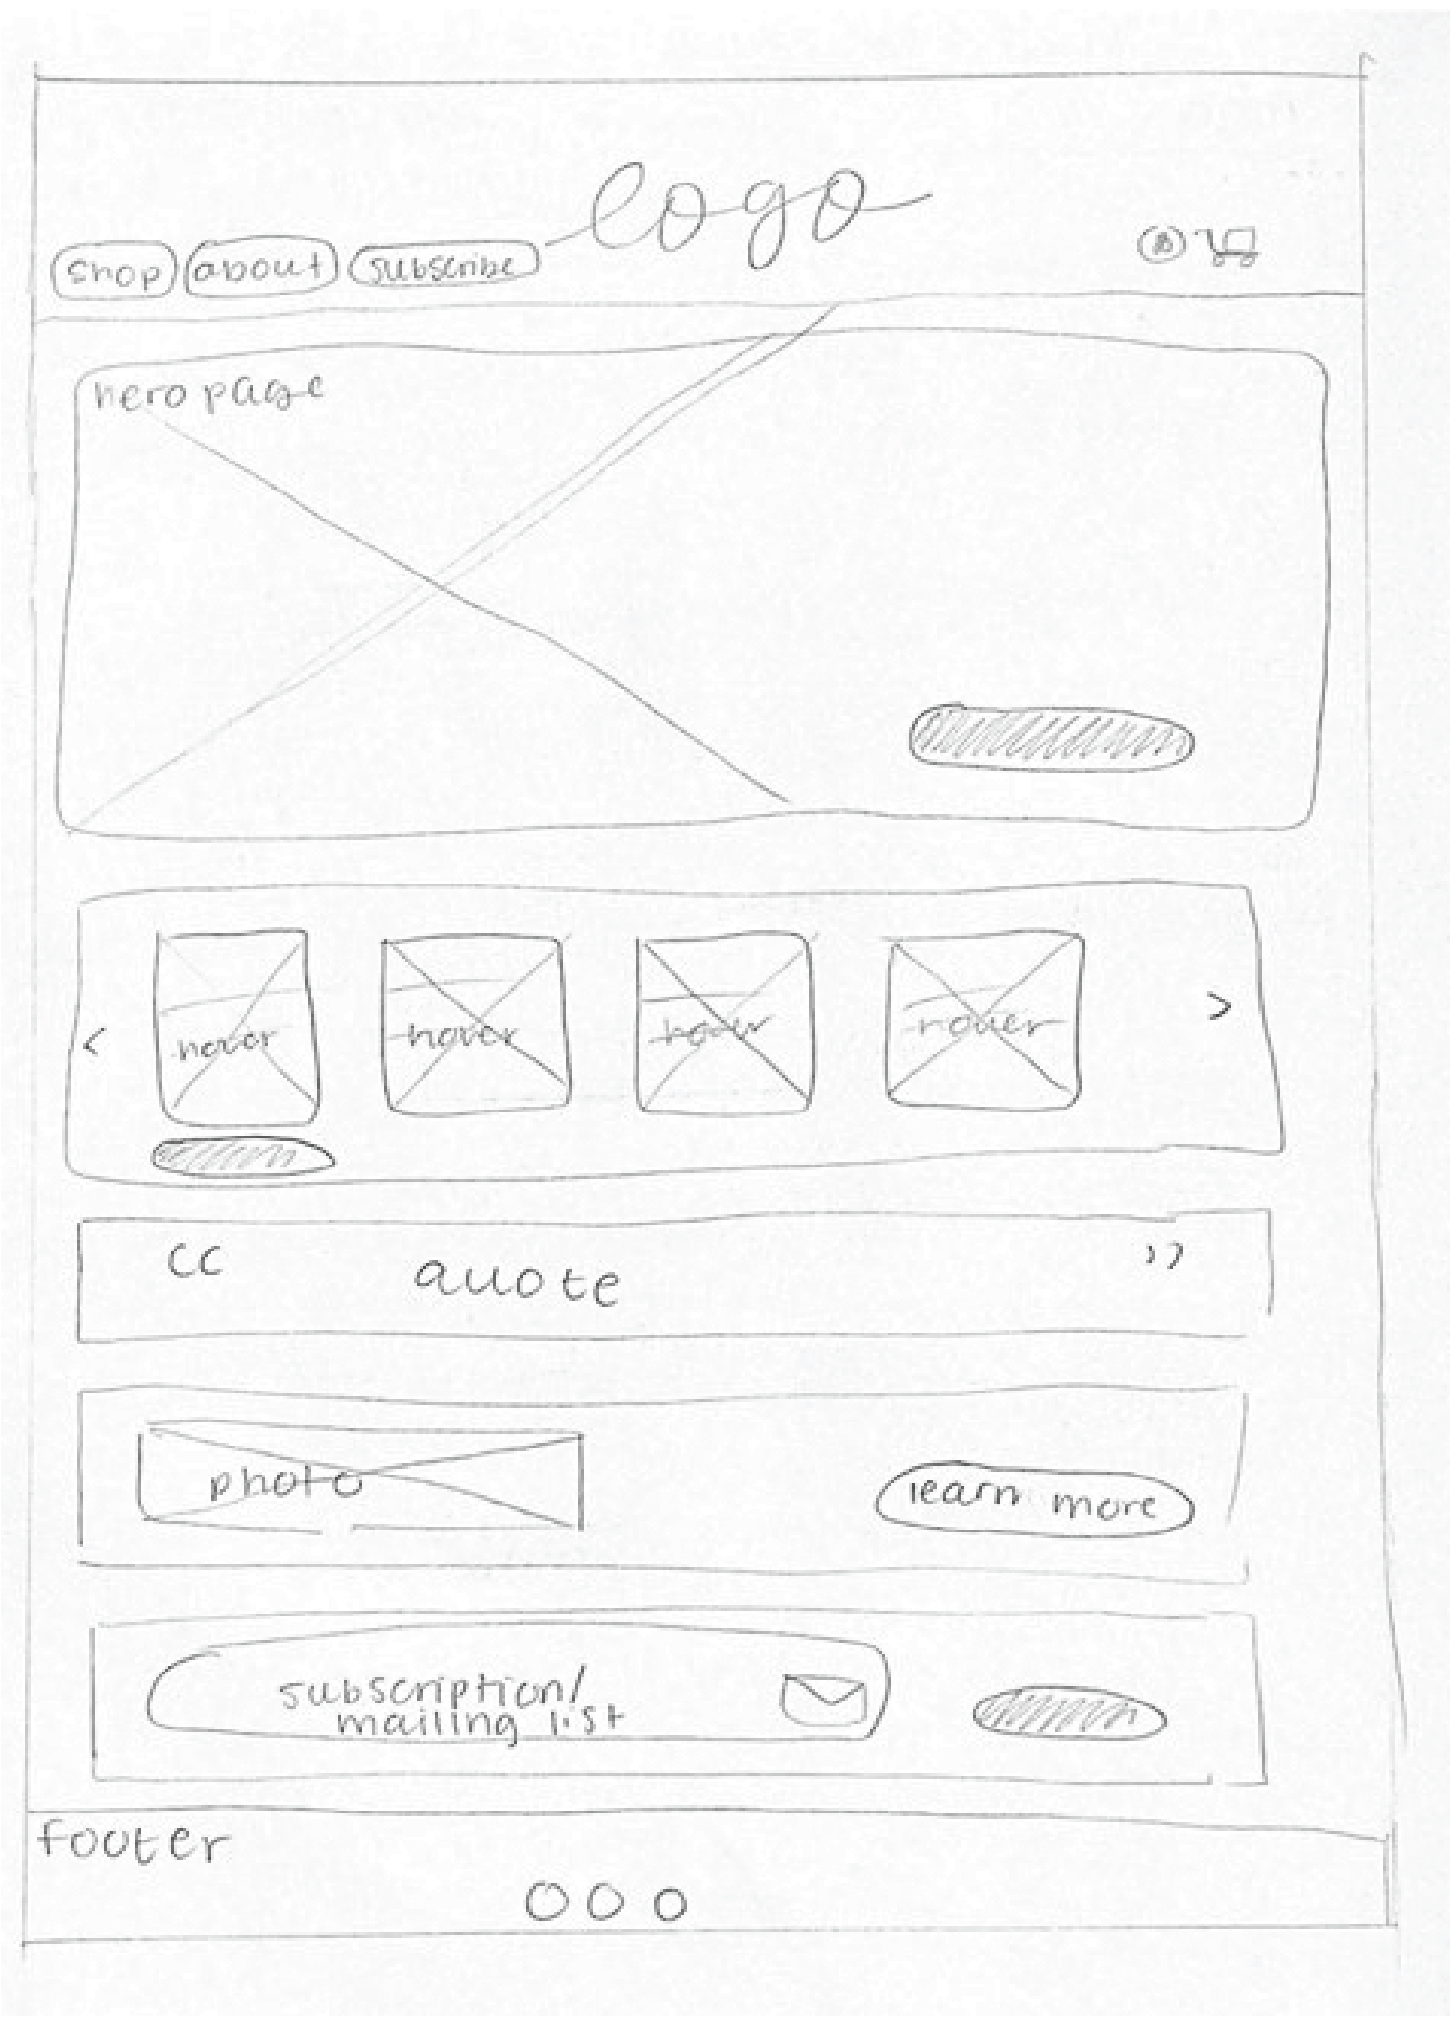 logo
shop about subscribe
hero page
< hover hover hover hover >
“ quote ”
photo
learn more
subscription/
mailing list
footer